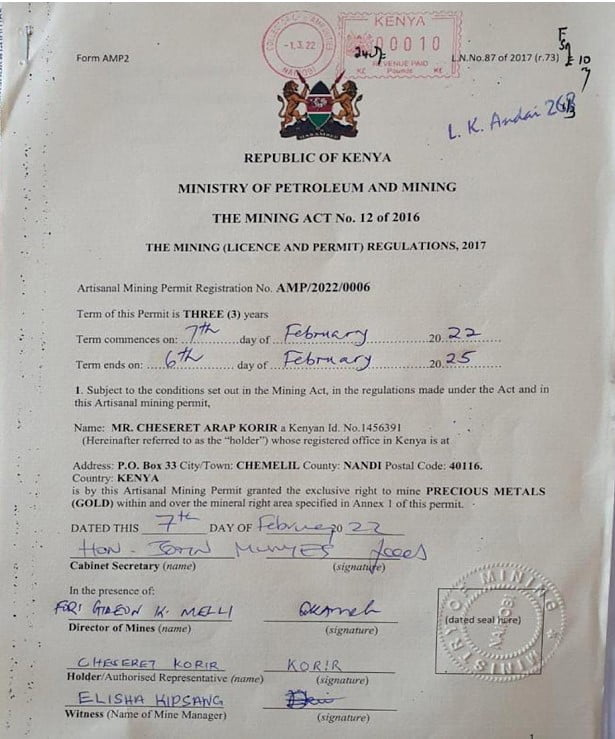 COLLECTOR OF STAMP DUTIES
-1.3.22
NAIROBI
KENYA
00010
REVENUE PAID
K£ Pounds K£
Form AMP2
L.N.No.87 of 2017 (r.73)
L. K. Andai
HARAMBEE
REPUBLIC OF KENYA
MINISTRY OF PETROLEUM AND MINING
THE MINING ACT No. 12 of 2016
THE MINING (LICENCE AND PERMIT) REGULATIONS, 2017
Artisanal Mining Permit Registration No. AMP/2022/0006
Term of this Permit is THREE (3) years
Term commences on: 7th day of February 2022
Term ends on: 6th day of February 2025
1. Subject to the conditions set out in the Mining Act, in the regulations made under the Act and in
this Artisanal mining permit,
Name: MR. CHESERET ARAP KORIR a Kenyan Id. No.1456391
(Hereinafter referred to as the “holder”) whose registered office in Kenya is at
Address: P.O. Box 33 City/Town: CHEMELIL County: NANDI Postal Code: 40116.
Country: KENYA
is by this Artisanal Mining Permit granted the exclusive right to mine PRECIOUS METALS
(GOLD) within and over the mineral right area specified in Annex 1 of this permit.
DATED THIS 7th DAY OF February 20 22
HON. JOHN MUNYES
Cabinet Secretary (name) (signature)
In the presence of:
FOR: GIDEON K. MELLI
Director of Mines (name) (signature)
(dated seal here)
MINISTRY OF MINING
NAIROBI
CHESERET KORIR KORIR
Holder/Authorised Representative (name) (signature)
ELISHA KIPSANG
Witness (Name of Mine Manager) (signature)
1